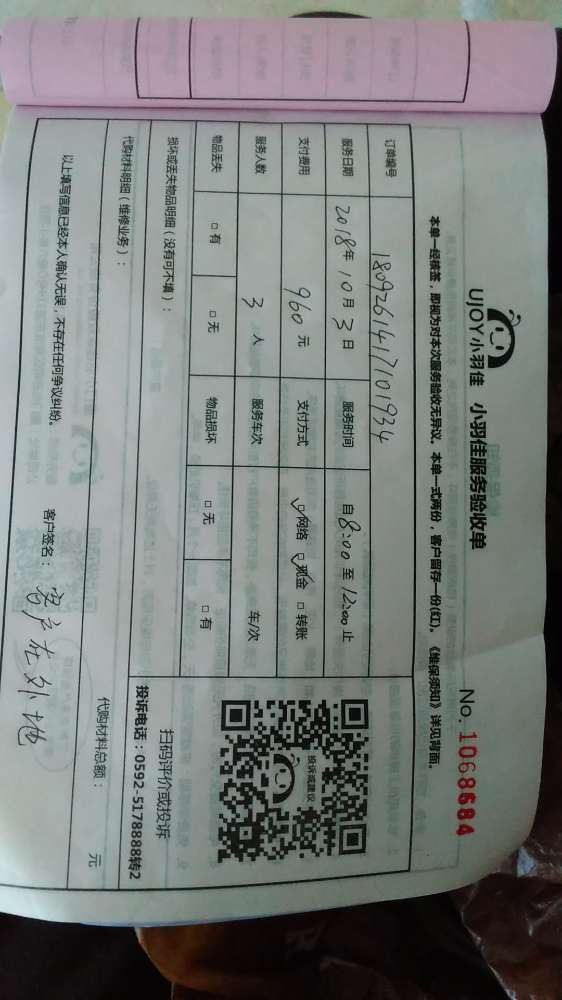 UJOY小羽佳 小羽佳服务验收单
No. 1068684
本单一经核签，即视为对本次服务验收无异议。本单一式两份，客户留存一份(红)。《维保须知》详见背面。
订单编号 1809261417101934
服务日期 2018年10月3日 服务时间 自8:00至12:00止
支付费用 960元 支付方式 ☑网络 ☑现金 □转账
服务人数 3人 服务车次 车/次
物品丢失 □有 □无 物品损坏 □无 □有
投诉或建议
扫码评价或投诉
投诉电话：0592-5178888转2
损坏或丢失物品明细（没有可不填）：
代购材料明细（维修业务）：
代购材料总额： 元
以上填写信息已经本人确认无误，不存在任何争议纠纷。
客户签名：客户在外地